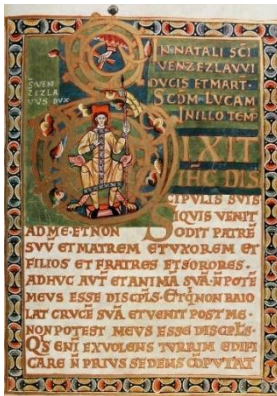 IN NATALI SCI
VENZEZLAVVI
DVCIS ET MART
SCDM LVCAM
IN ILLO TEMP
S VEN
ZEZLA
VVS DVX
DIXIT
IHC DIS
CIPVLIS SVIS
SIQVIS VENIT
AD ME ET NON ODIT PATRE
SVV ET MATREM ET VXOREM ET
FILIOS ET FRATRES ET SORORES
ADHVC AVT ET ANIMA SVA N POTE
MEVS ESSE DISCPLS ET Q NON BAIO
LAT CRVCE SVA ET VENIT POST ME
NON POTEST MEVS ESSE DISCPLS
QS ENI EX VOLENS TVRRIM EDIFI
CARE N PRIVS SEDENS CPVTAT